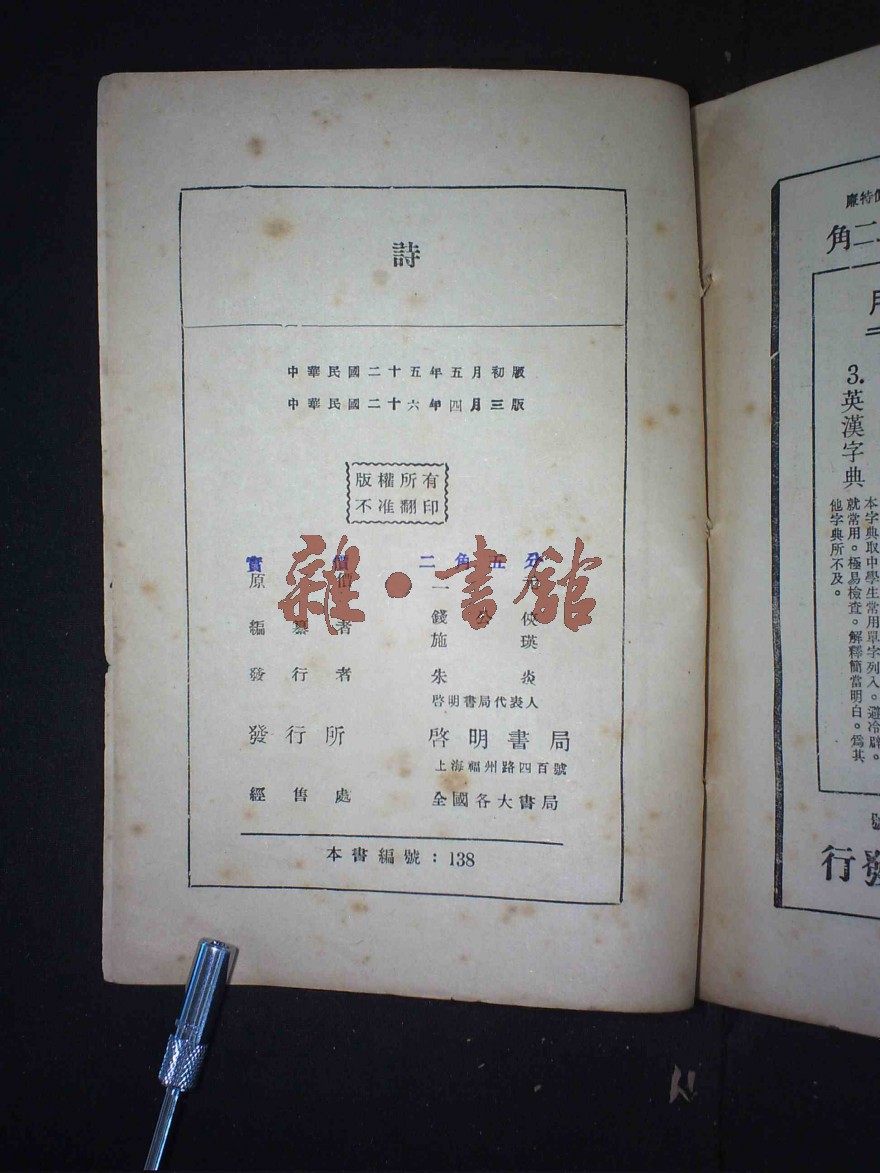 詩
中華民國二十五年五月初版
中華民國二十六年四月三版
版權所有
不准翻印
實價 二角五分
原價 一元
編纂者 錢公俠
施瑛
發行者 朱炎
啓明書局代表人
發行所 啓明書局
上海福州路四百號
經售處 全國各大書局
本書編號：138
雜·書館
價特廉
二角
用
3.
英漢字典
本字典取中學生常用單字列入。避冷僻。
就常用。極易檢查。解釋簡當明白。爲其
他字典所不及。
號
發行